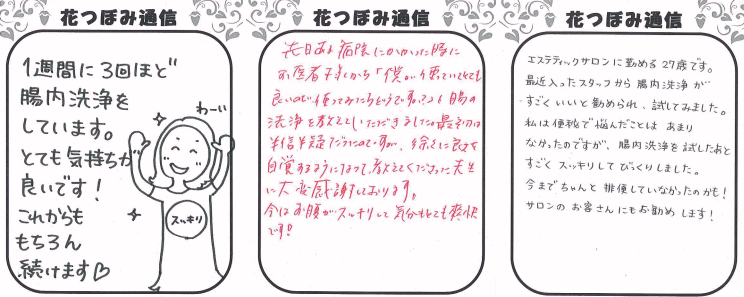 花つぼみ通信
1週間に3回ほど
腸内洗浄を
しています。
とても気持ちが
良いです！
これからも
もちろん
続けます♡
わーい
スッキリ
花つぼみ通信
先日ある病院にかかった時に
お医者さんから「僕が使っていてとても
良いので使ってみたらどうですか？」と腸の
洗浄を教えていただきました。最初は
半信半疑だったのですが、徐々に良さを
自覚するようになって、教えてくださった先生
に大変感謝しております。
今はお腹がスッキリして気分もとても爽快
です！
花つぼみ通信
エステティックサロンに勤める27歳です。
最近入ったスタッフから腸内洗浄が
すごくいいと勧められ、試してみました。
私は便秘で悩んだことはあまり
なかったのですが、腸内洗浄を試したあと
すごくスッキリしてびっくりしました。
今までちゃんと排便していなかったのかも！
サロンのお客さんにもお勧めします！